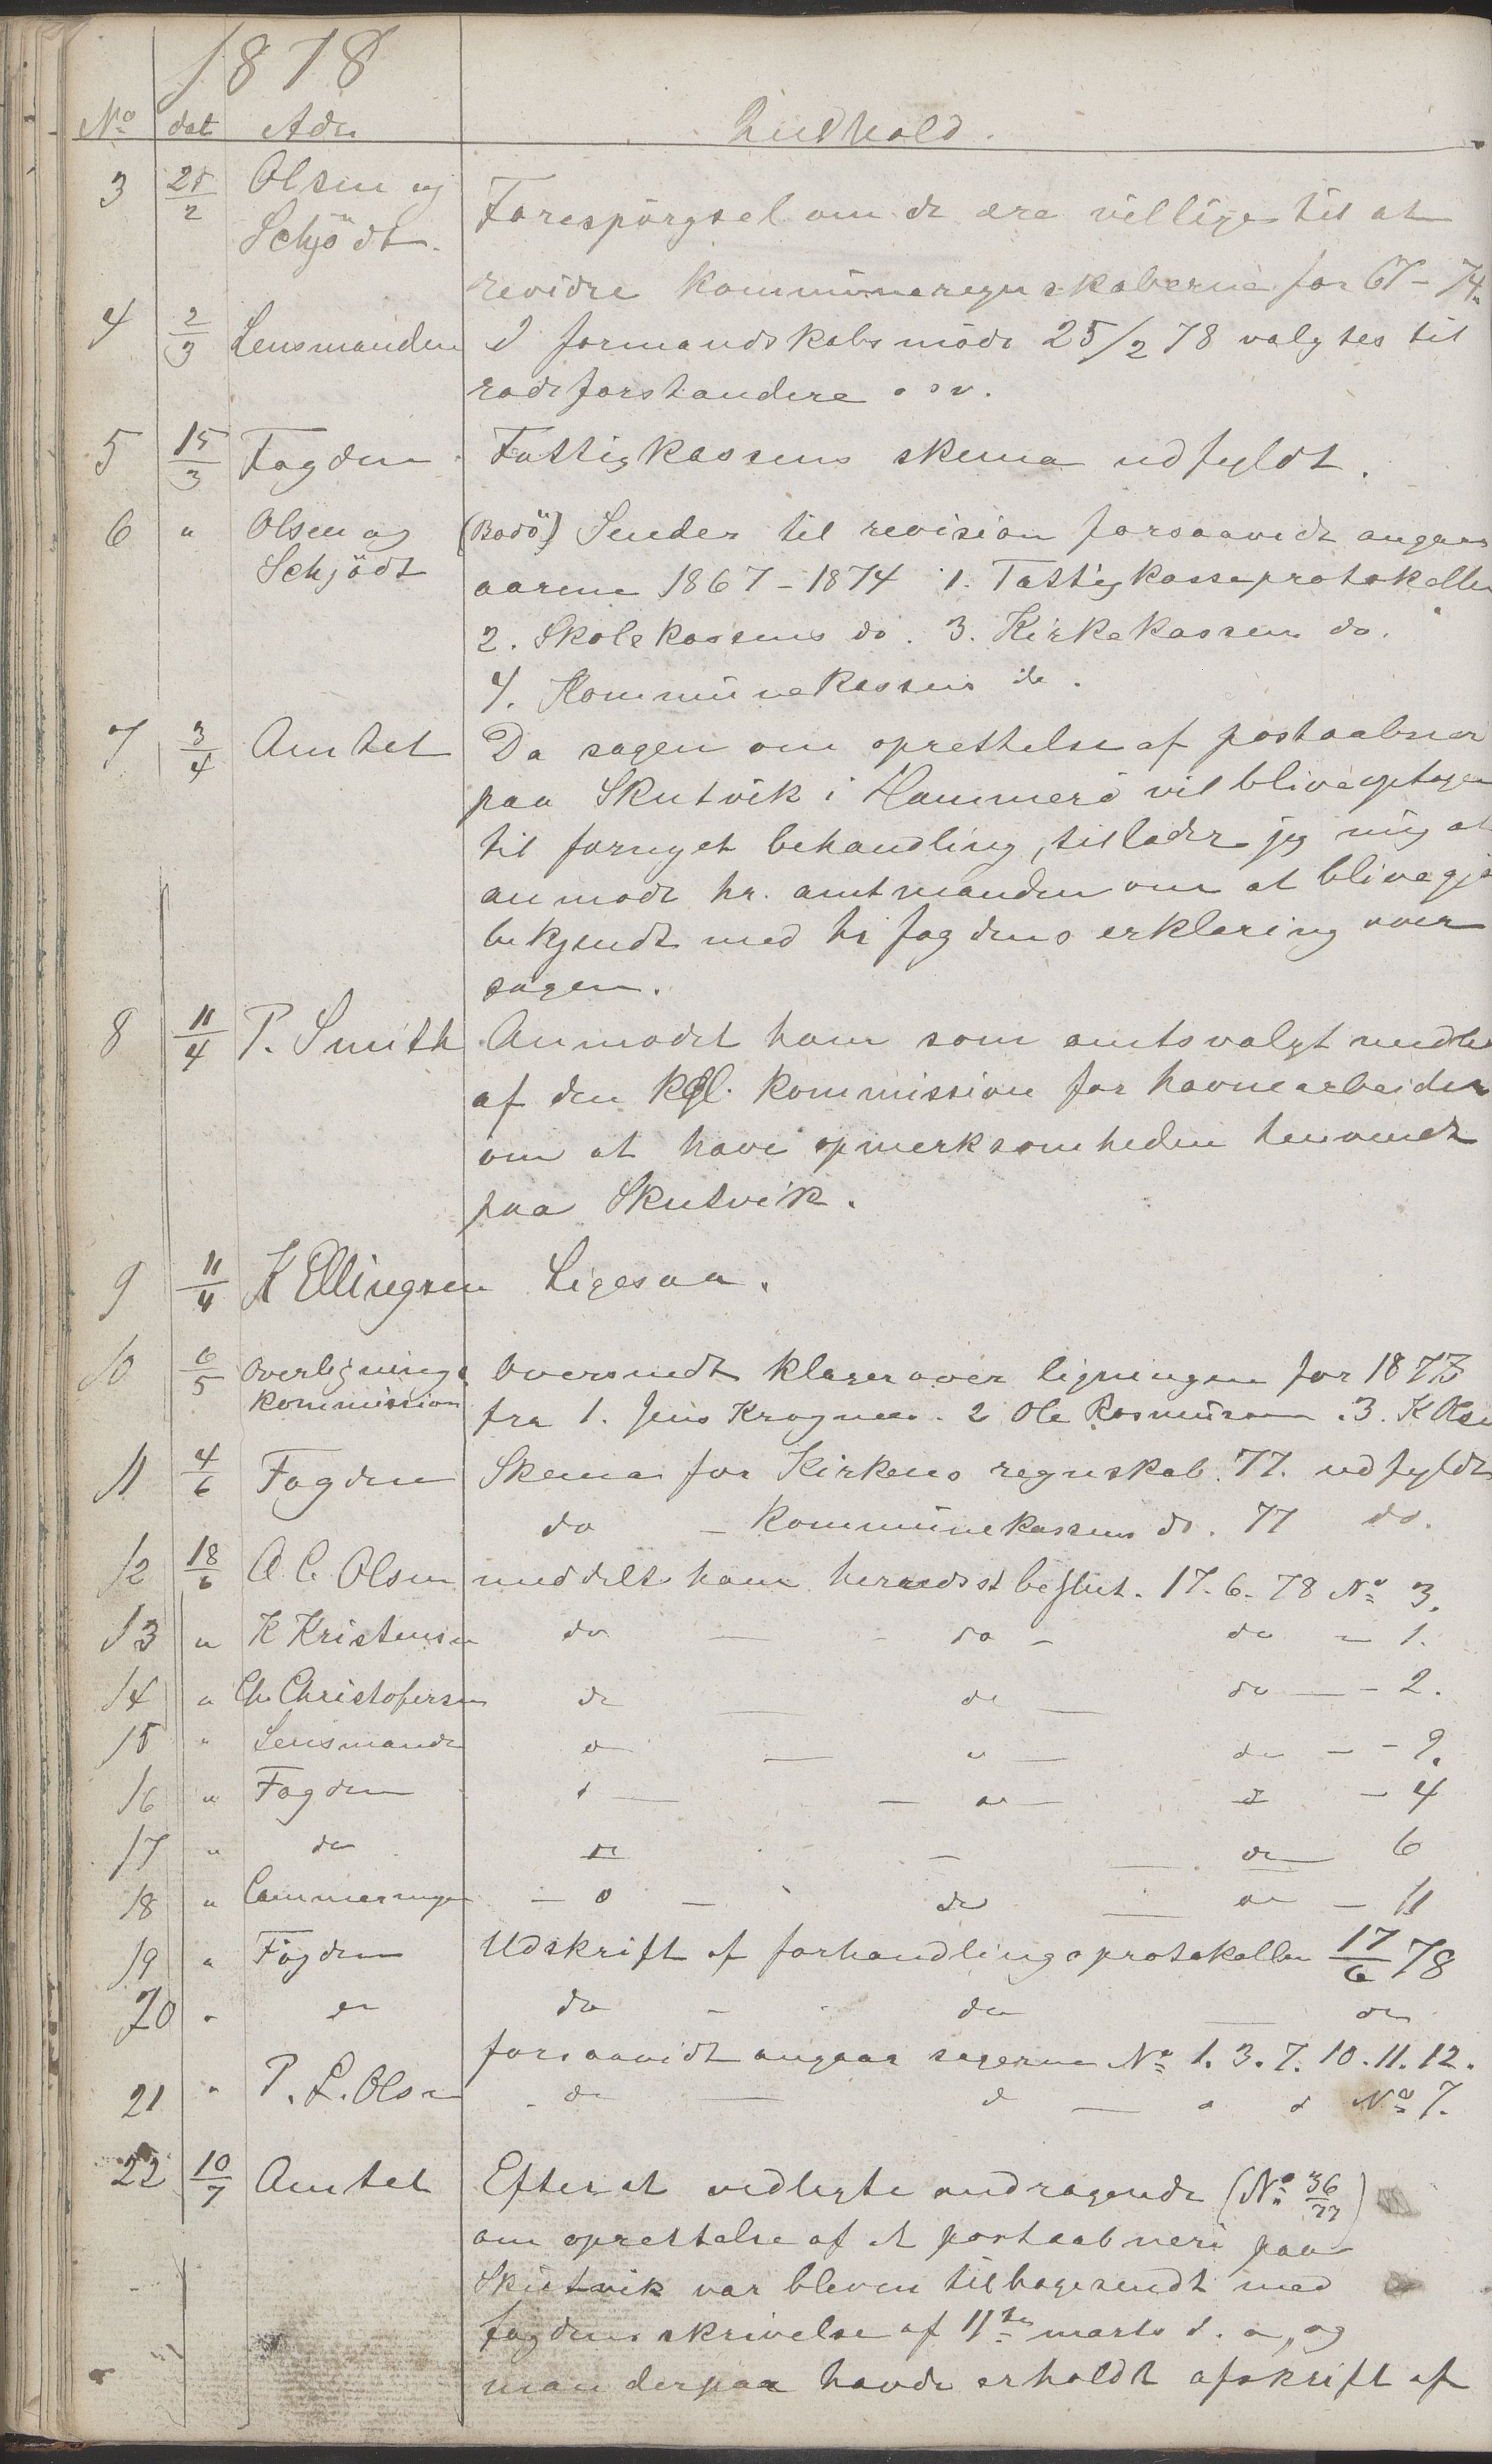 1878
No dat Adr Indhold.
3 25/2 Olsen og Schjödt. Forespörgsel om de ere villige til at
revidre kommuneregnskaberne for 67-74.
4 2/3 Lensmanden I formandskabsmöde 25/2 78 valgtes til
rodeforstandere osv.
5 15/3 Fogden Fattigkassens skema udfyldt.
6 " Olsen og Schjödt (Bodö) Sender til revision forsaavidt angaar
aarene 1867-1874 1. Fattigkasseprotokollen
2. Skolekassens do. 3. Kirkekassens do.
4. Kommunekassens do.
7 3/4 Amtet Da sagen om oprettelse af postaabneri
paa Skutvik i Hammerö vil blive optagen
til fornyet behandling, tillader jeg mig at
anmode hr. amtmanden om at blive gjo
bekjendt med hr fogdens erklæring over
sagen.
8 11/4 P. Smith Anmodet ham som amtsvalgt medle
af den kgl. kommission for havnearbeider
om at have opmerksomheden henvendt
paa Skutvik.
9 11/4 K Ellingsen Ligesaa.
10 6/5 Overlignings kommission Oversendt klager over ligningen for 1878
fra 1. Jens Kragnes. 2 Ole Rasmussen. 3. K Olse
11 4/6 Fogden Skema for Kirkens regnskab. 77. udfyldt
do - Kommunekassens do. 77 do.
12 18/6 A C. Olsen meddelt ham herredsst beslut. 17.6.78 No 3.
13 " K Kristensen do - - do - do - 1.
14 " Chr Christofersen do — do — do — - 2.
15 " Lensmanden do — " — do - - 9.
16 " Fogden d — - do — d - 4
17 " do do - — do 6
18 " Cammermeyer - o - do — do - 11
19 " Fogden Udskrift af forhandlingsprotokollen 17/6 78
20 " do do - do — do
forsaavidt angaar sagerne No 1. 3. 7. 10. 11. 12.
21 " P. L. Olsen do — d — d d No 7.
22 10/7 Amtet Efter at vedlagte andragende (No 36/77)
om oprettelse af et postaabneri paa
Skutvik var bleven tilbagesendt med
fogdens skrivelse af 11te marts d. a., og
man derpaa havde erholdt afskrift af